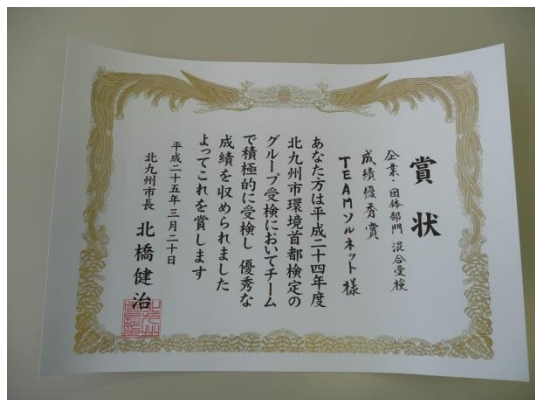 賞状
企業・団体部門 混合受検
成績優秀賞
TEAMソルネット様
あなた方は平成二十四年度
北九州市環境首都検定の
グループ受検においてチーム
で積極的に受検し 優秀な
成績を収められました
よってこれを賞します
平成二十五年三月二十日
北九州市長 北橋健治